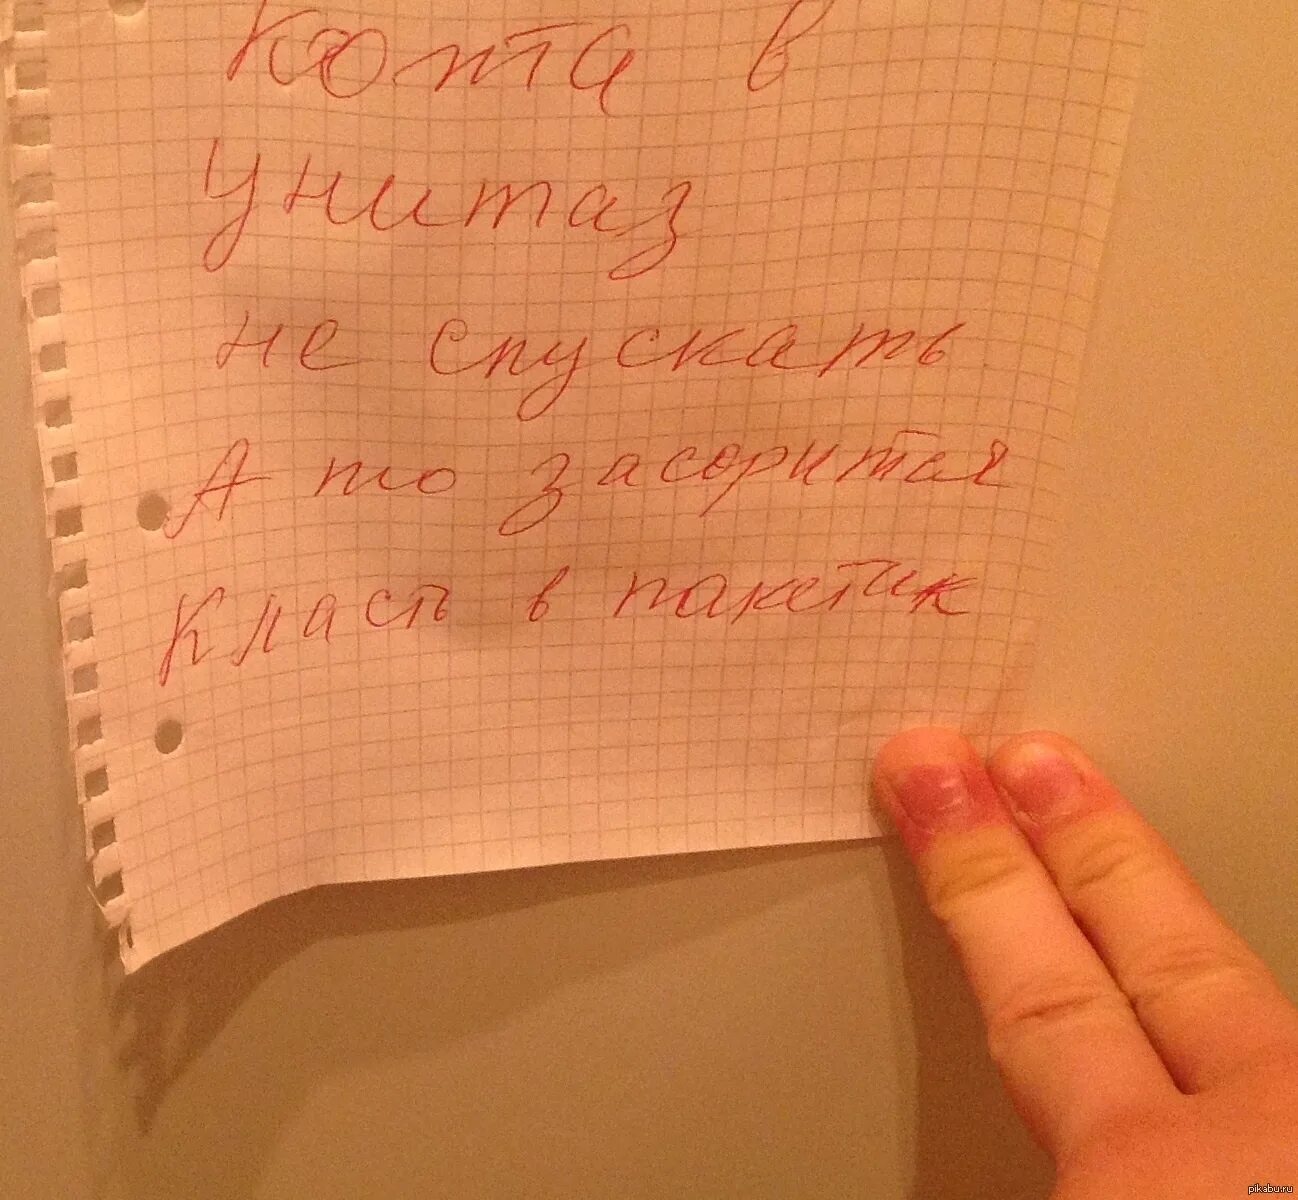 Кота в
унитаз
не спускать
А то засорится
Класть в пакетик
pikabu.ru